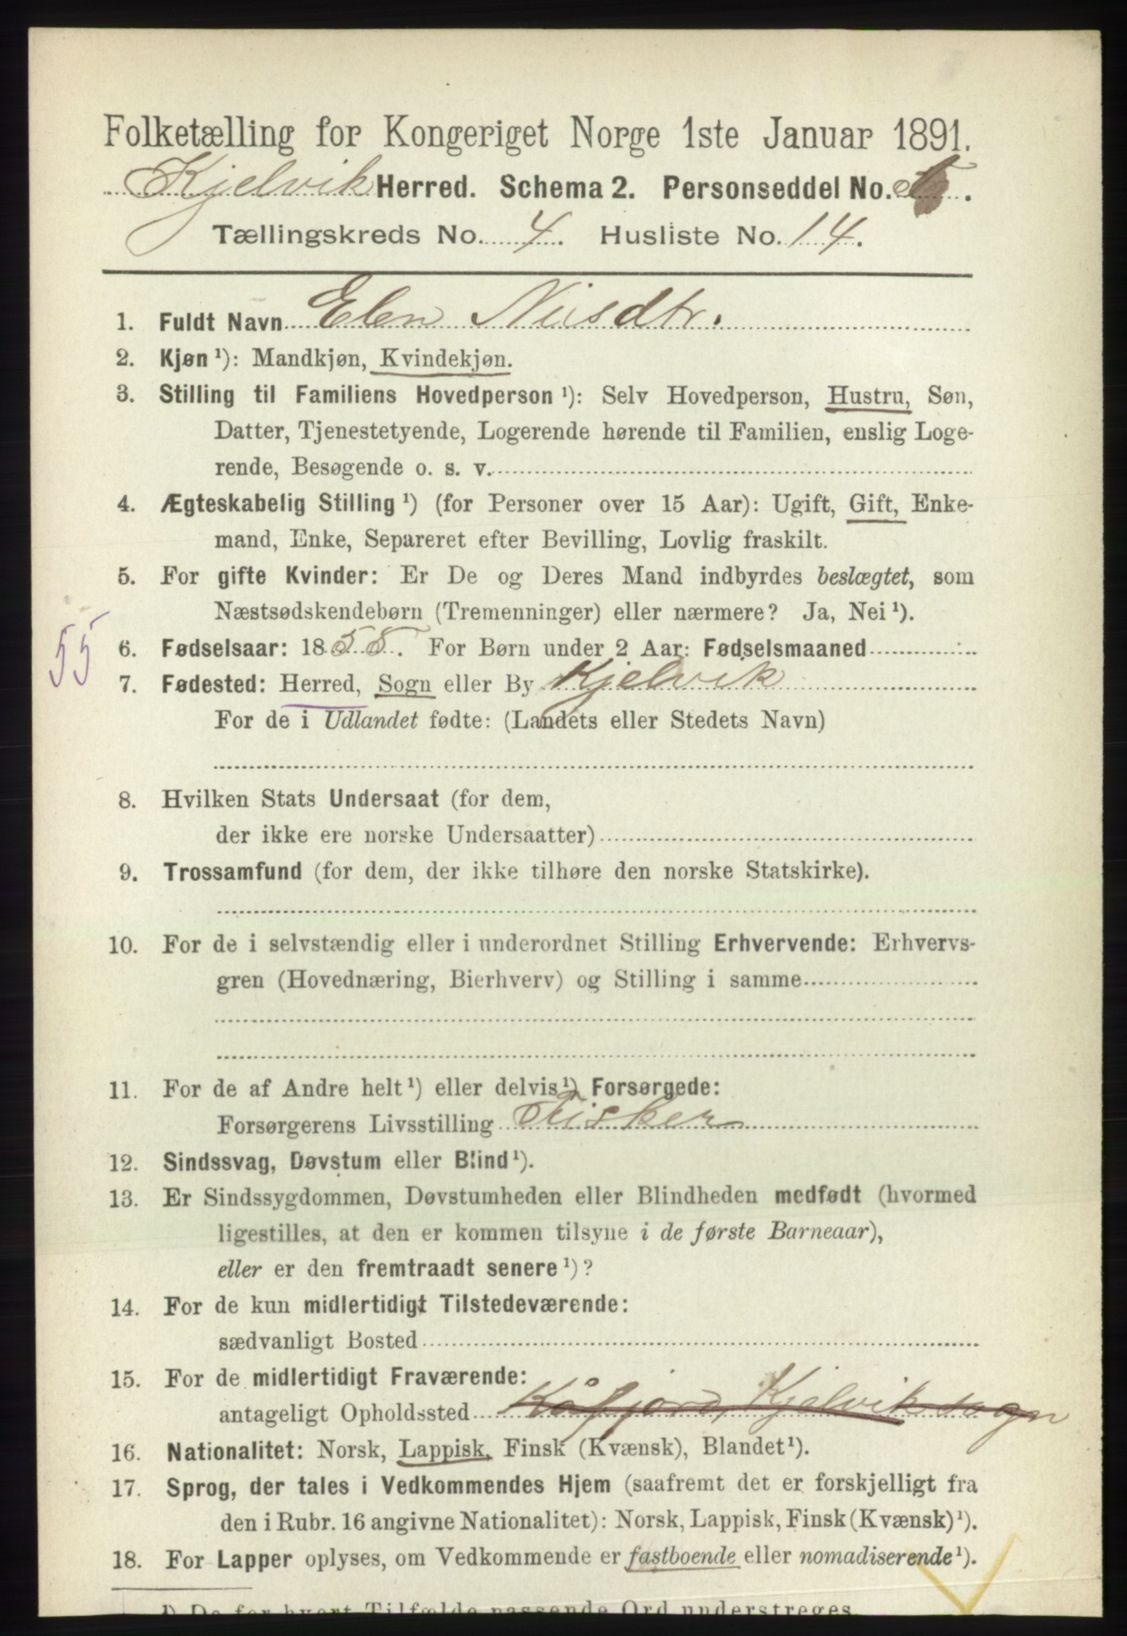 Folketælling for Kongeriget Norge 1ste Januar 1891.
Kjelvik Herred. Schema 2. Personseddel No.
Tællingskreds No. 4. Husliste No. 14.
1. Fuldt Navn Elen Nilsdtr.
2. Kjøn ¹): Mandkjøn, Kvindekjøn.
3. Stilling til Familiens Hovedperson ¹): Selv Hovedperson, Hustru, Søn,
Datter, Tjenestetyende, Logerende hørende til Familien, enslig Loge-
rende, Besøgende o. s. v.
4. Ægteskabelig Stilling ¹) (for Personer over 15 Aar): Ugift, Gift, Enke-
mand, Enke, Separeret efter Bevilling, Lovlig fraskilt.
5. For gifte Kvinder: Er De og Deres Mand indbyrdes beslægtet, som
Næstsødskendebørn (Tremenninger) eller nærmere? Ja, Nei ¹).
55
6. Fødselsaar: 1855. For Børn under 2 Aar: Fødselsmaaned
7. Fødested: Herred, Sogn eller By Kjelvik
For de i Udlandet fødte: (Landets eller Stedets Navn)
8. Hvilken Stats Undersaat (for dem,
der ikke ere norske Undersaatter)
9. Trossamfund (for dem, der ikke tilhøre den norske Statskirke).
10. For de i selvstændig eller i underordnet Stilling Erhvervende: Erhvervs-
gren (Hovednæring, Bierhverv) og Stilling i samme
11. For de af Andre helt ¹) eller delvis ¹) Forsørgede:
Forsørgerens Livsstilling Fisker
12. Sindssvag, Døvstum eller Blind ¹).
13. Er Sindssygdommen, Døvstumheden eller Blindheden medfødt (hvormed
ligestilles, at den er kommen tilsyne i de første Barneaar),
eller er den fremtraadt senere ¹)?
14. For de kun midlertidigt Tilstedeværende:
sædvanligt Bosted
15. For de midlertidigt Fraværende:
antageligt Opholdssted Kåfjord, Kjelvik sogn
16. Nationalitet: Norsk, Lappisk, Finsk (Kvænsk), Blandet ¹).
17. Sprog, der tales i Vedkommendes Hjem (saafremt det er forskjelligt fra
den i Rubr. 16 angivne Nationalitet): Norsk, Lappisk, Finsk (Kvænsk) ¹).
18. For Lapper oplyses, om Vedkommende er fastboende eller nomadiserende ¹).
¹) De for hvert Tilfælde passende Ord understreges.